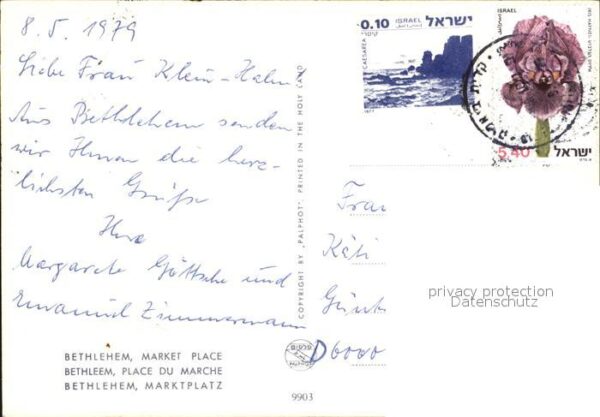 8.5.1979
Liebe Frau Klein-Hahn
Aus Bethlehem senden
wir Ihnen die herz-
lichsten Grüße
Ihre
Margarete Göttsche und
Emanuel Zimmermann
BETHLEHEM, MARKET PLACE
BETHLEEM, PLACE DU MARCHE
BETHLEHEM, MARKTPLATZ
COPYRIGHT BY "PALPHOT" PRINTED IN THE HOLY LAND
9903
0.10 ISRAEL ישראל
CAESAREA
קיסריה
1977
ISRAEL
5.40 ישראל
Frau
Käti
D6000
privacy protection
Datenschutz